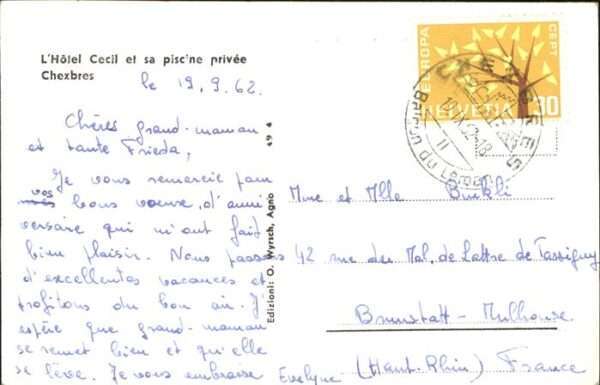 L'Hôtel Cecil et sa piscine privée
Chexbres
le 19.9.62.
Chères grand-maman
et tante Frieda,
Je vous remercie pour
vos bons voeux d'anni
versaire qui m'ont fait
bien plaisir. Nous passons
d'excellentes vacances et
profitons du bon air. J'es
père que grand-maman
se remet bien et qu'elle
se lève. Je vous embrasse
Evelyne
494
Edizioni: O. Wyrsch, Agno
EUROPA
CEPT
HELVETIA
30
CHEXBRES
Balcon du Léman
Mme et Mlle Burkli
42 rue du Mal. de Lattre de Tassigny
Brunstatt - Mulhouse
(Haut-Rhin) France